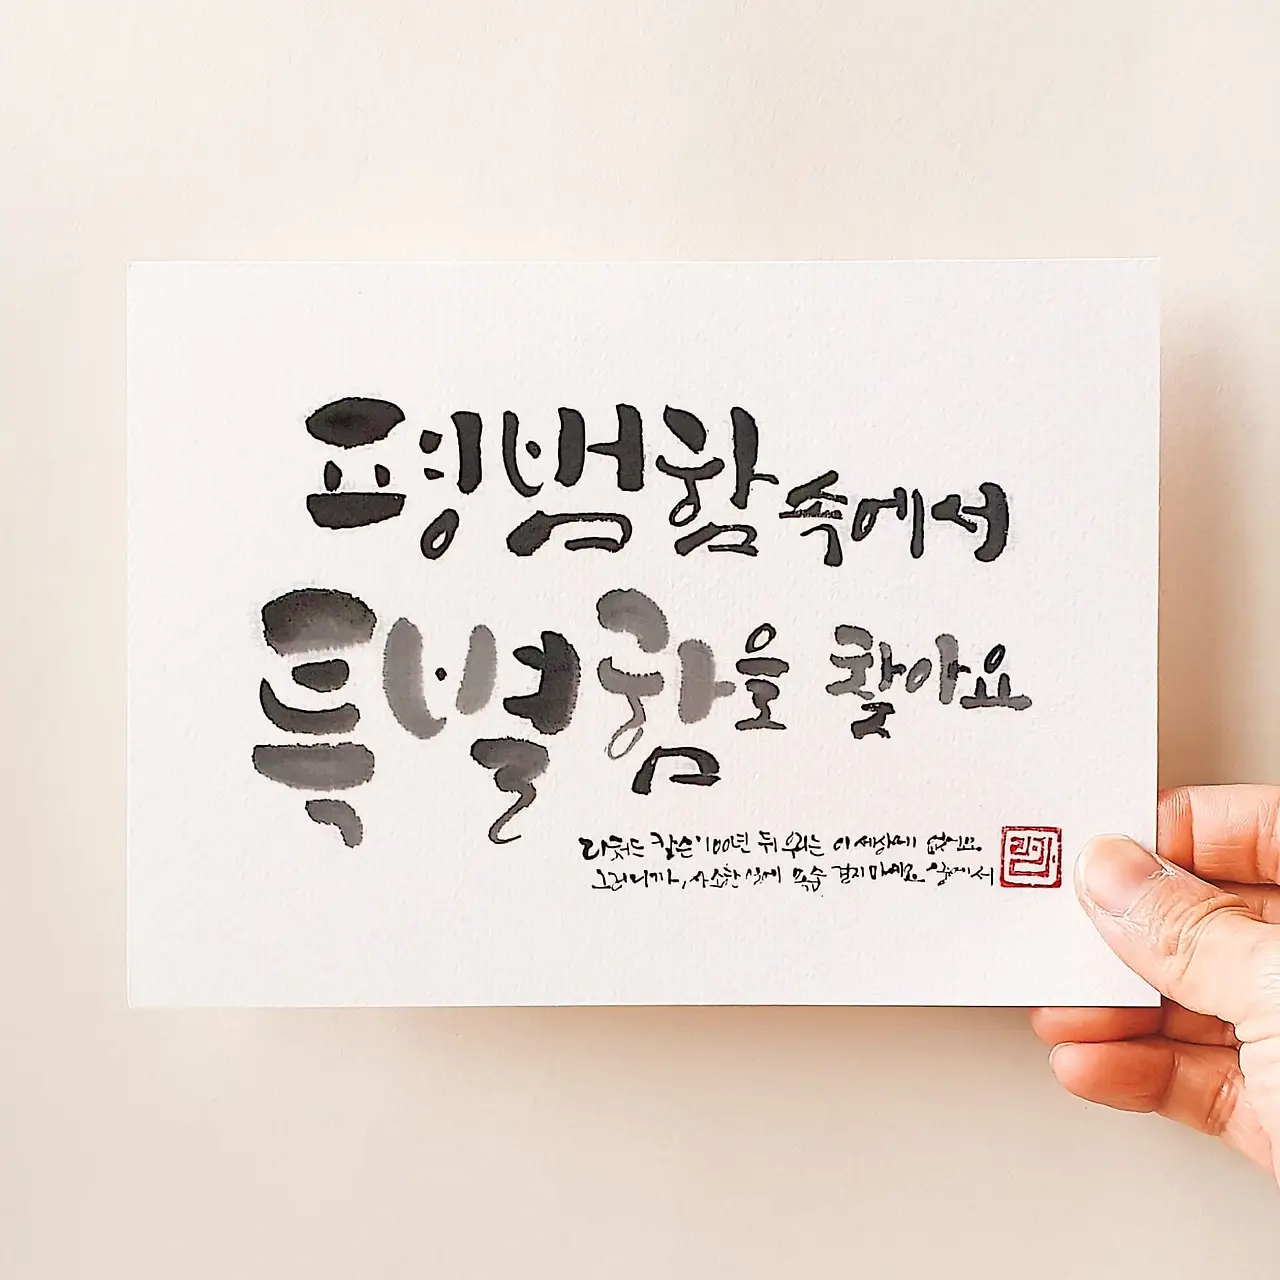 평범함 속에서
특별함을 찾아요
리처드 칼슨 '100년 뒤 우리는 이 세상에 없어요
그러니까, 사소한 일에 목숨 걸지 마세요' 중에서